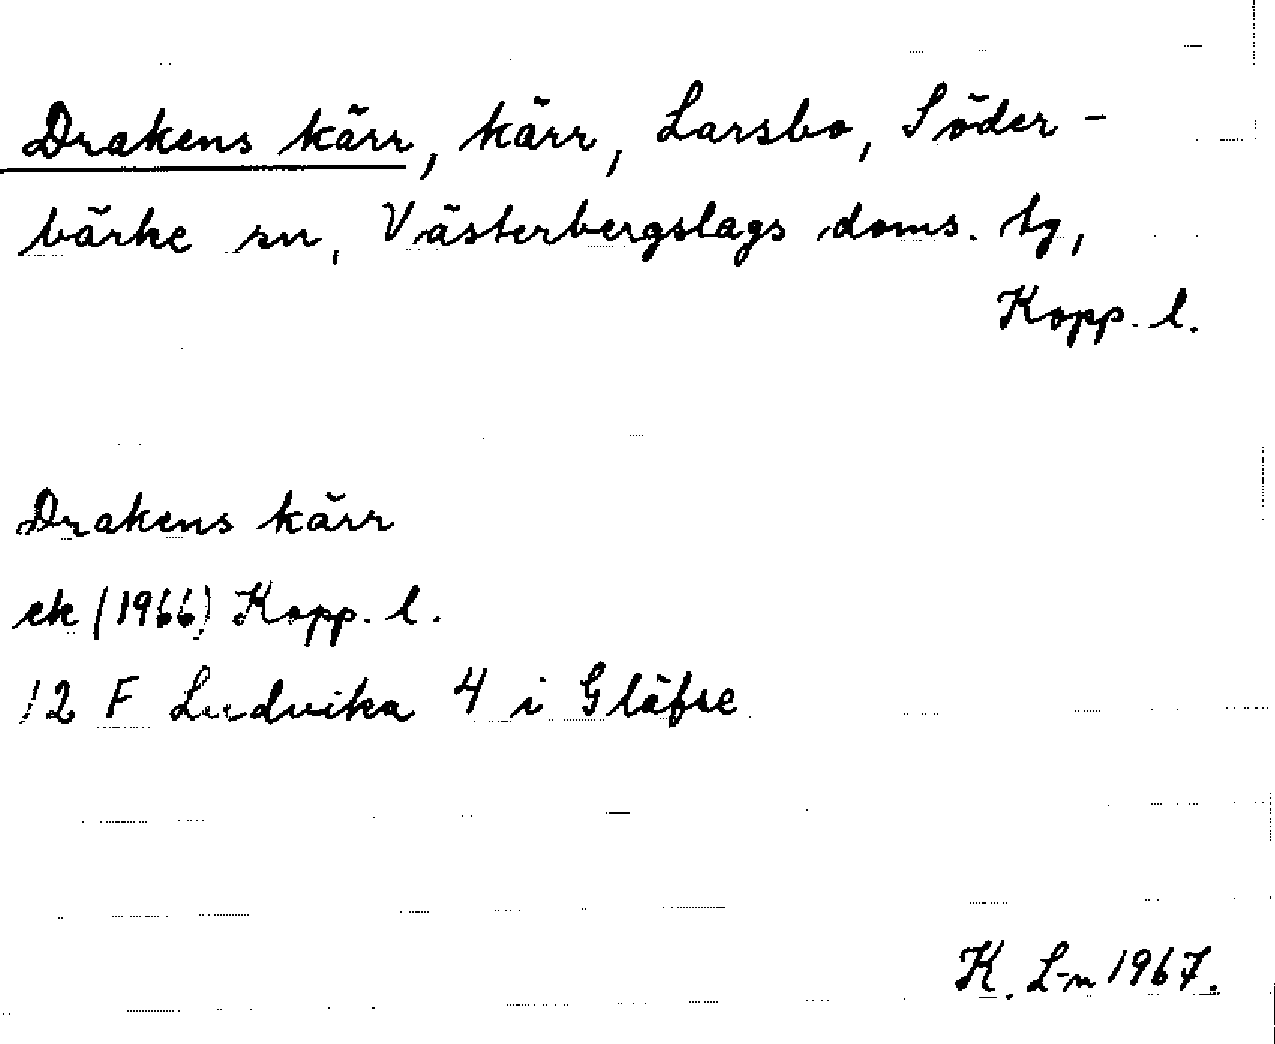 Drakens kärr, kärr, Larsbo, Söder-
bärke sn, Västerbergslags doms. tg,
Kopp. l.
Drakens kärr
ek (1966) Kopp. l.
12 F Ludvika 4 i Gläfse
K. L-n 1967.